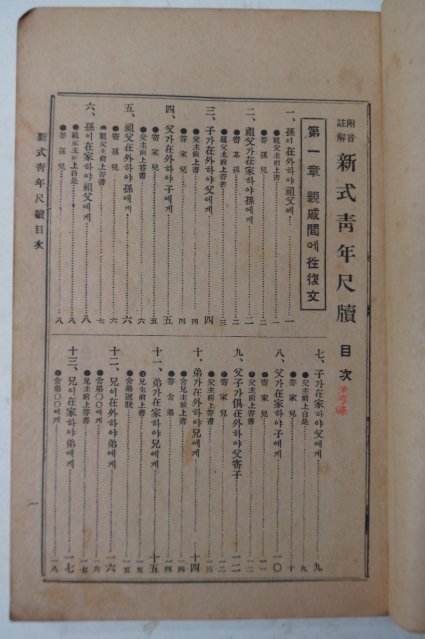 附音
註解
新式靑年尺牘 目次
第一章 親戚間에往復文
一、孫이在外하야祖父께……一
●祖父主前上書……一
●寄孫兒……二
二、祖父가在外하야孫에게……二
●寄某孫……二
●祖父主前上答書……三
三、子가在外하야父에게……四
●父主前上書……四
●寄家兒……四
四、父가在外하야子에게……五
●寄家兒……五
●父主前上答書……六
五、祖父在外하야孫에게……六
●寄孫兒……六
●祖父主前上答書……七
六、孫이在家하야祖父에게……八
●祖父主前上白是……八
●寄孫兒……八
七、子가在家하야父에게……九
●父主前上白是……九
●寄家兒……十
八、父가在家하야子에게……一〇
●寄家兒……一一
●父主前上答書……一一
九、父子가俱在外하야父寄子……一二
●寄家兒……一二
●父主前上答書……一三
十、弟가在外하야兄에게……一四
●舍兄主前上書……一四
●答舍弟……一四
十一、弟가在家하야兄에게……一五
●兄主前上書……一五
●舍弟……一五
十二、兄이在外하야弟에게……一六
●舍弟〇〇에게……一六
●兄主前上答書……一七
十三、兄이在家하야弟에게……一七
●舍弟〇〇에게……一八
新式靑年尺牘目次
一